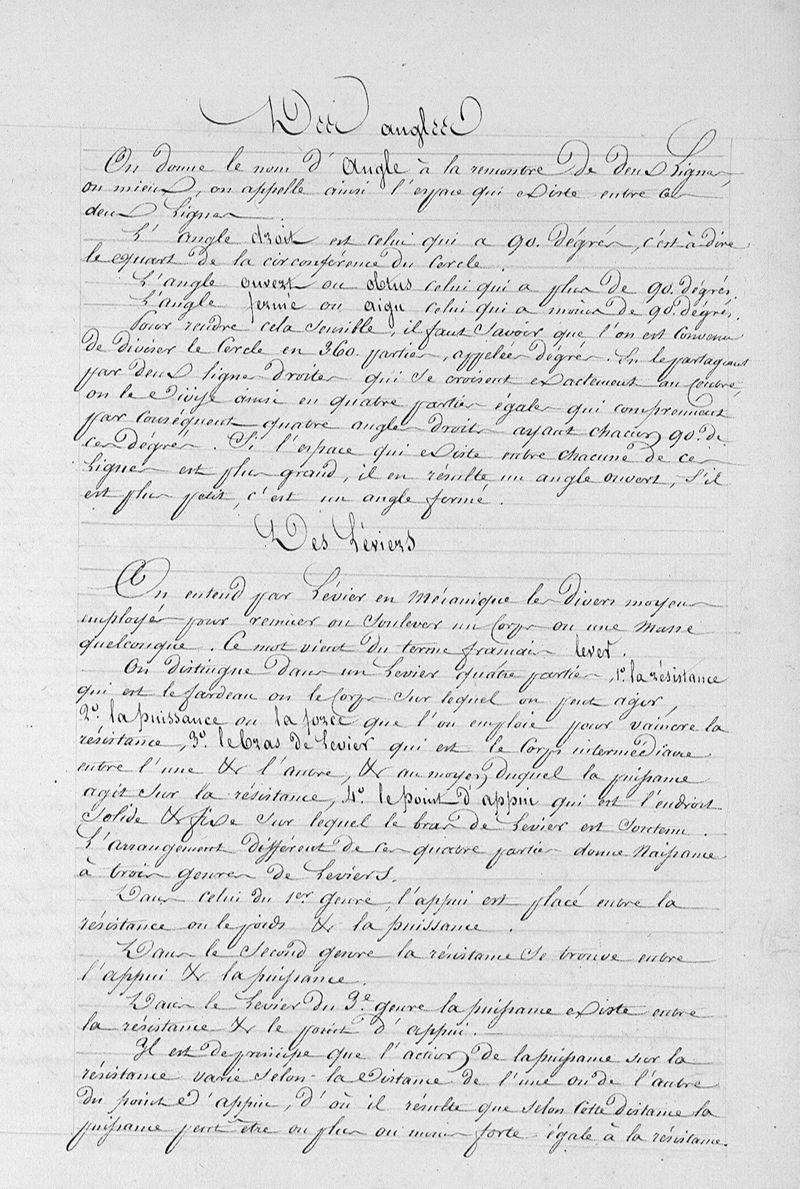 Des angles
On donne le nom d'angle à la rencontre de deux Lignes,
ou mieux, on appelle ainsi l'espace qui existe entre ces
deux Lignes
L'angle droit est celui qui a 90. dégrés, c'est à dire
le quart de la circonférence du Cercle.
L'angle ouvert ou obtus celui qui a plus de 90. dégrés.
L'angle fermé ou aigu celui qui a moins de 90. dégrés.
Pour rendre cela sensible, il faut savoir que l'on est convenu
de diviser le Cercle en 360. parties, appelées dégrés. En le partageant
par deux lignes droites qui se croisent exactement au Centre,
on le divise ainsi en quatre parties égales qui comprennent
par conséquent quatre angles droits ayant chacun 90.° de
ces dégrés. Si l'espace qui existe entre chacune de ces
Lignes est plus grand, il en résulte un angle ouvert, s'il
est plus petit, c'est un angle fermé.
Des Léviers
On entend par Lévier en Mécanique les divers moyens
employés pour remuer ou soulever un Corps ou une Masse
quelconque. Ce mot vient du terme français lever.
On distingue dans un Levier quatre parties, 1.° la résistance
qui est le fardeau ou le Corps sur lequel on peut agir,
2.° la puissance ou la force que l'on emploie pour vaincre la
résistance, 3.° le bras de Levier qui est le Corps intermédiaire
entre l'une & l'autre, & au moyen duquel la puissance
agit sur la résistance, 4.° le point d'appui qui est l'endroit
solide & fixe sur lequel le bras de Levier est soutenu.
L'arrangement différent de ces quatre parties donne Naissance
à trois genres de Leviers.
Dans celui du 1er genre, l'appui est placé entre la
résistance ou le poids & la puissance.
Dans le Second genre la résistance se trouve entre
l'appui & la puissance.
Dans le Levier du 3.e genre la puissance existe entre
la résistance & le point d'appui.
Il est de principe que l'action de la puissance sur la
résistance varie selon la distance de l'une ou de l'autre
du point d'appui, d'où il résulte que selon cette distance la
puissance peut être ou plus ou moins forte égale à la résistance.